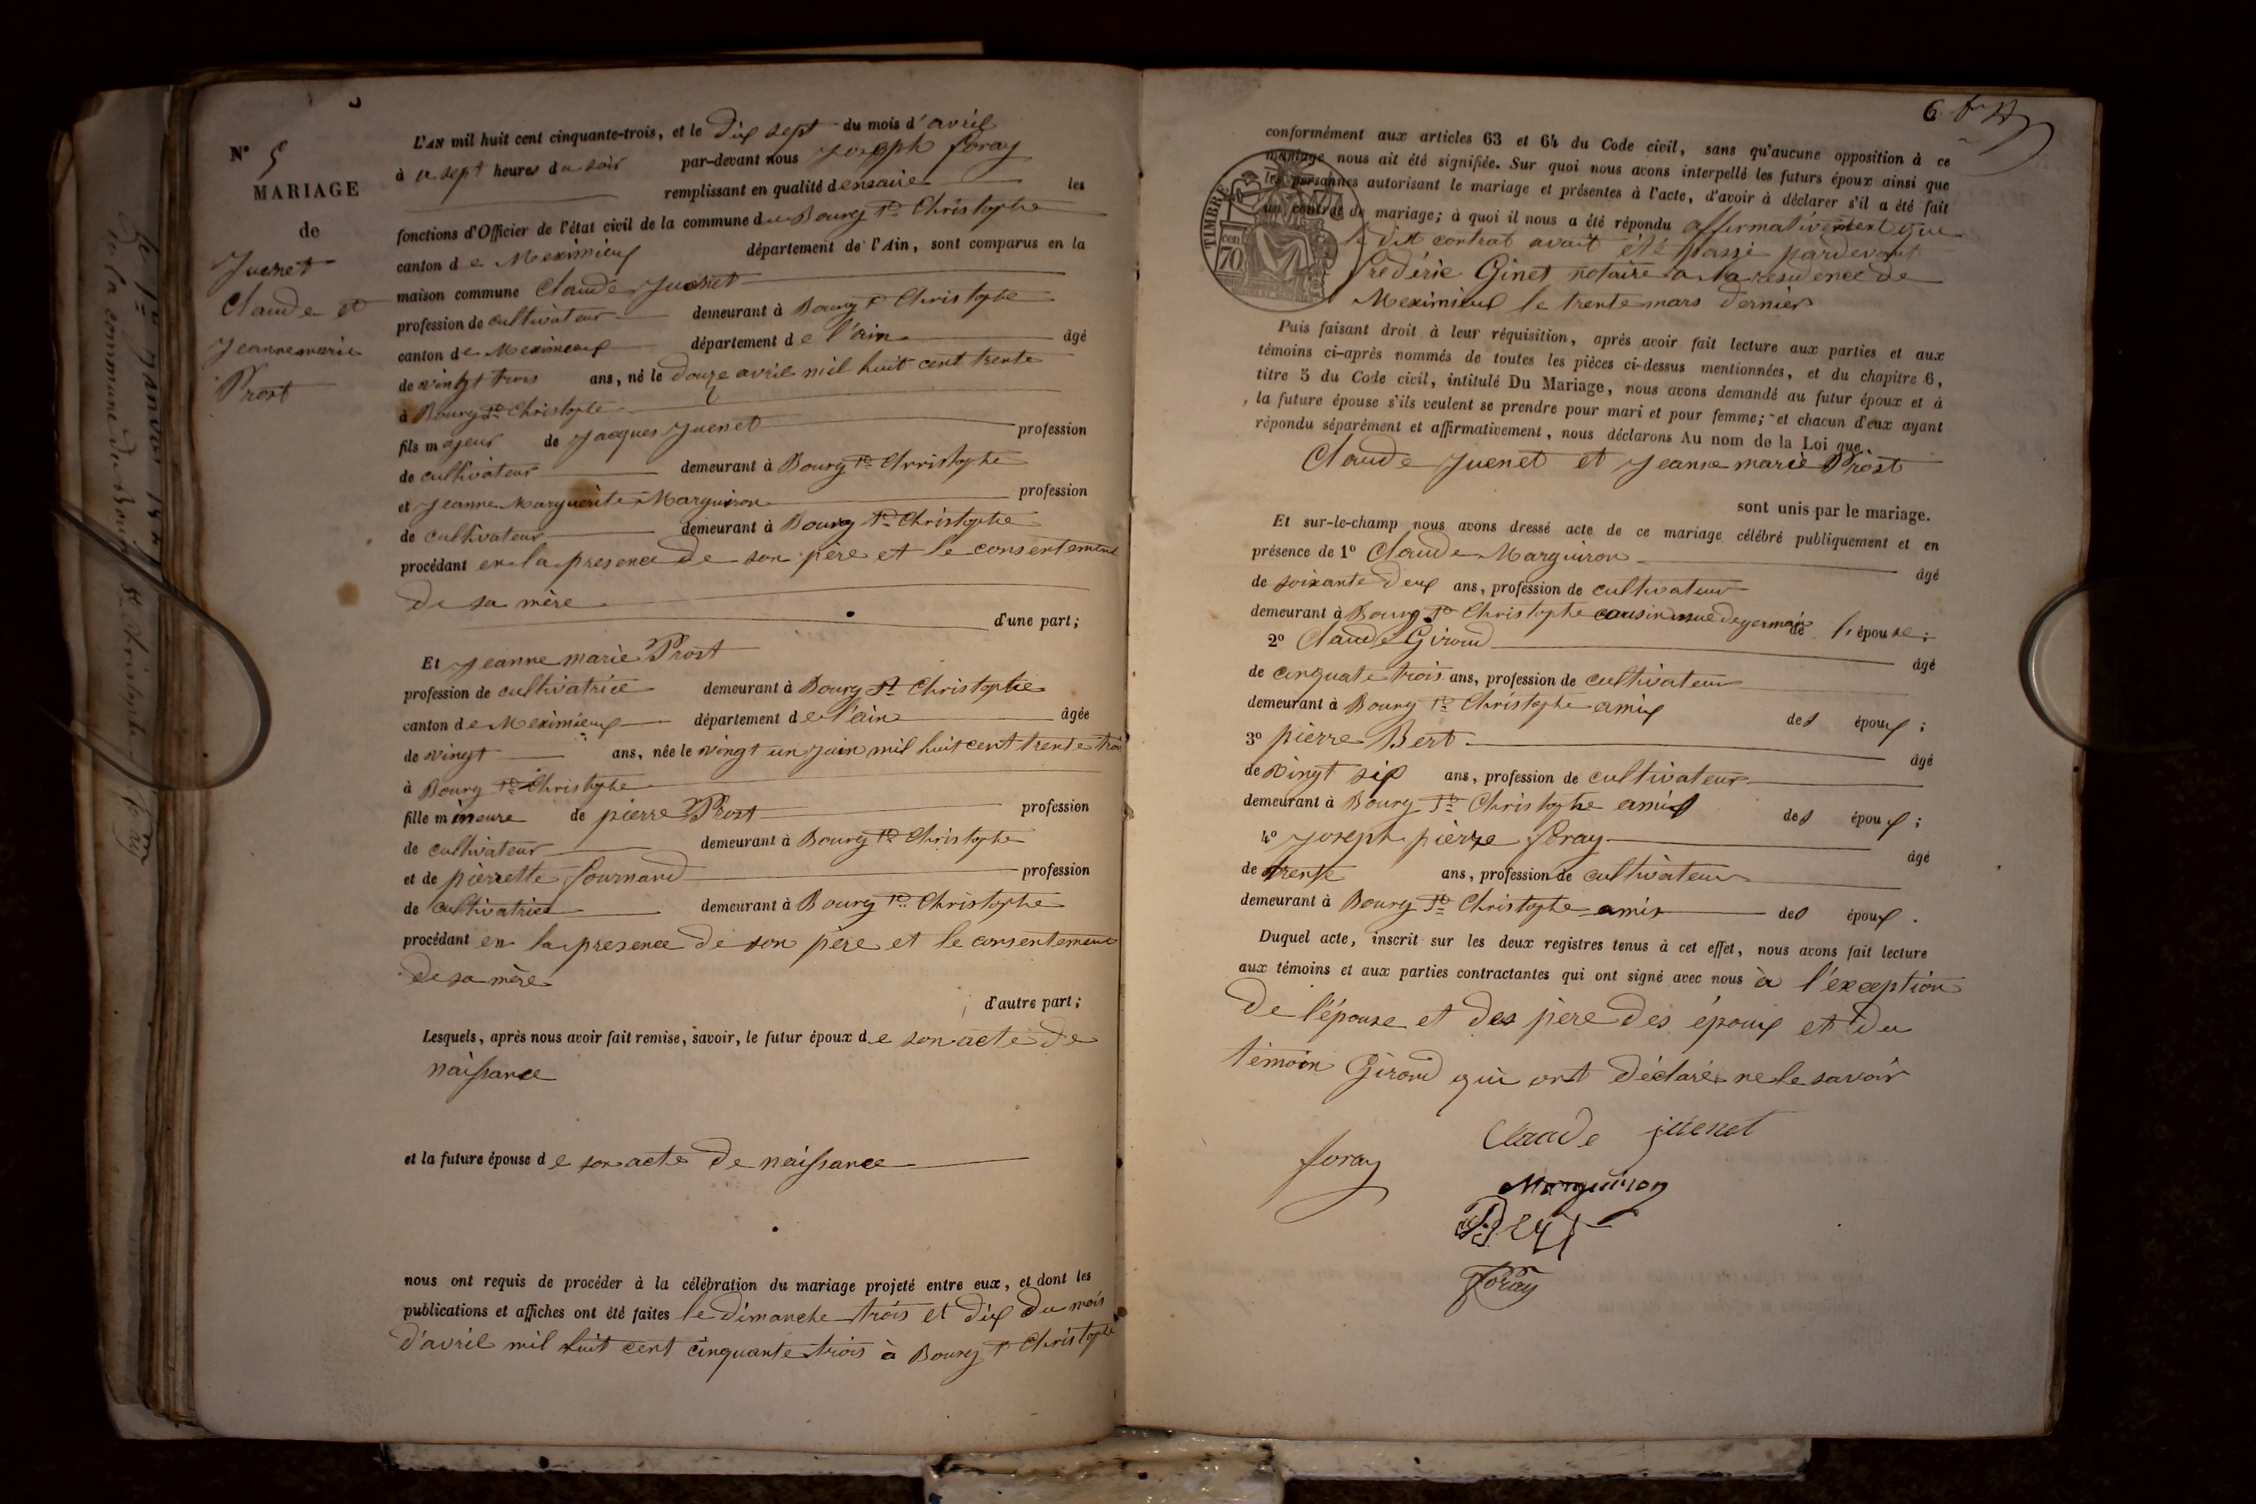 L'AN mil huit cent cinquante-trois, et le dix sept du mois d'avril
N° 5
à sept heures du soir par-devant nous Joseph foray
MARIAGE
remplissant en qualité de maire les
de
fonctions d'Officier de l'état civil de la commune de Bourg St Christophe
Juenet
canton de Meximieux département de l'Ain, sont comparus en la
Claude et
maison commune Claude Juenet
Jeanne marie
profession de cultivateur demeurant à Bourg St Christophe
Prost
canton de Meximieux département de l'ain âgé
de vingt trois ans, né le douze avril mil huit cent trente
à Bourg St Christophe
fils majeur de Jacques Juenet profession
de cultivateur demeurant à Bourg St Christophe
et Jeanne Marguerite Marguiron profession
de cultivateur demeurant à Bourg St Christophe
procédant en la presence de son père et le consentement
de sa mère
d'une part;
Et Jeanne marie Prost
profession de cultivatrice demeurant à Bourg St Christophe
canton de Meximieux département de l'ain âgée
de vingt ans, née le vingt un juin mil huit cent trente trois
à Bourg St Christophe
fille mineure de pierre Prost profession
de cultivateur demeurant à Bourg St Christophe
et de pierrette fournand profession
de cultivatrice demeurant à Bourg St Christophe
procédant en la presence de son père et le consentement
de sa mère
d'autre part;
Lesquels, après nous avoir fait remise, savoir, le futur époux de son acte de
naissance
et la future épouse de son acte de naissance
nous ont requis de procéder à la célébration du mariage projeté entre eux, et dont les
publications et affiches ont été faites le dimanche trois et dix du mois
d'avril mil huit cent cinquante trois à Bourg St Christophe
6
conformément aux articles 63 et 64 du Code civil, sans qu'aucune opposition à ce
mariage nous ait été signifiée. Sur quoi nous avons interpellé les futurs époux ainsi que
les personnes autorisant le mariage et présentes à l'acte, d'avoir à déclarer s'il a été fait
un contrat de mariage; à quoi il nous a été répondu affirmativement que
le dit contrat avait été passé pardevant
frédéric Ginet notaire a la residence de
Meximieux le trente mars dernier
TIMBRE
cen
70
Puis faisant droit à leur réquisition, après avoir fait lecture aux parties et aux
témoins ci-après nommés de toutes les pièces ci-dessus mentionnées, et du chapitre 6,
titre 5 du Code civil, intitulé Du Mariage, nous avons demandé au futur époux et à
la future épouse s'ils veulent se prendre pour mari et pour femme; et chacun d'eux ayant
répondu séparément et affirmativement, nous déclarons Au nom de la Loi que
Claude Juenet et Jeanne marie Prost
sont unis par le mariage.
Et sur-le-champ nous avons dressé acte de ce mariage célébré publiquement et en
présence de 1° Claude Marguiron âgé
de soixante deux ans, profession de cultivateur
demeurant à Bourg St Christophe cousin issue de germain de l'épouse;
2° Claude Giroud âgé
de cinquate trois ans, profession de cultivateur
demeurant à Bourg St Christophe amis des époux;
3° pierre Bert âgé
de vingt six ans, profession de cultivateur
demeurant à Bourg St Christophe amis des époux;
4° Joseph pierre foray âgé
de trente ans, profession de cultivateur
demeurant à Bourg St Christophe amis des époux.
Duquel acte, inscrit sur les deux registres tenus à cet effet, nous avons fait lecture
aux témoins et aux parties contractantes qui ont signé avec nous à l'exception
de l'épouse et des père des époux et du
témoin Giroud qui ont déclaré ne le savoir
Claude juenet
foray
Marguiron
Bert
foray